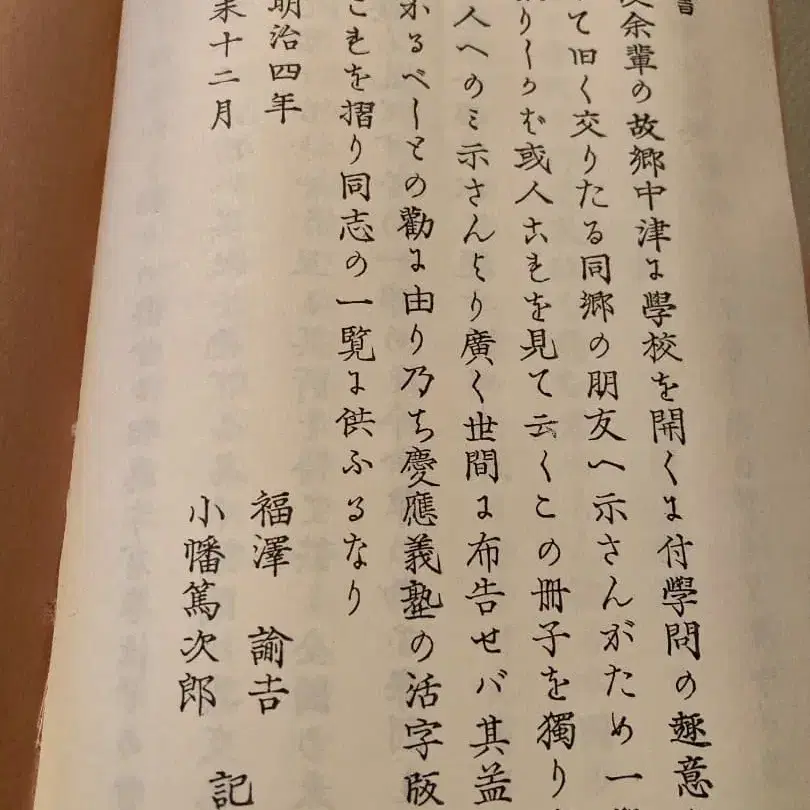 書
余輩の故郷中津に學校を開くに付學問の趣意
て旧く交りたる同郷の朋友へ示さんがため一
りしかば或人これを見て云くこの冊子を獨り
人へのミ示さんより廣く世間に布告せバ其益
かるべしとの勸に由り乃ち慶應義塾の活字版
これを摺り同志の一覧に供ふるなり
明治四年
未十二月
福澤 諭吉
小幡篤次郎
記